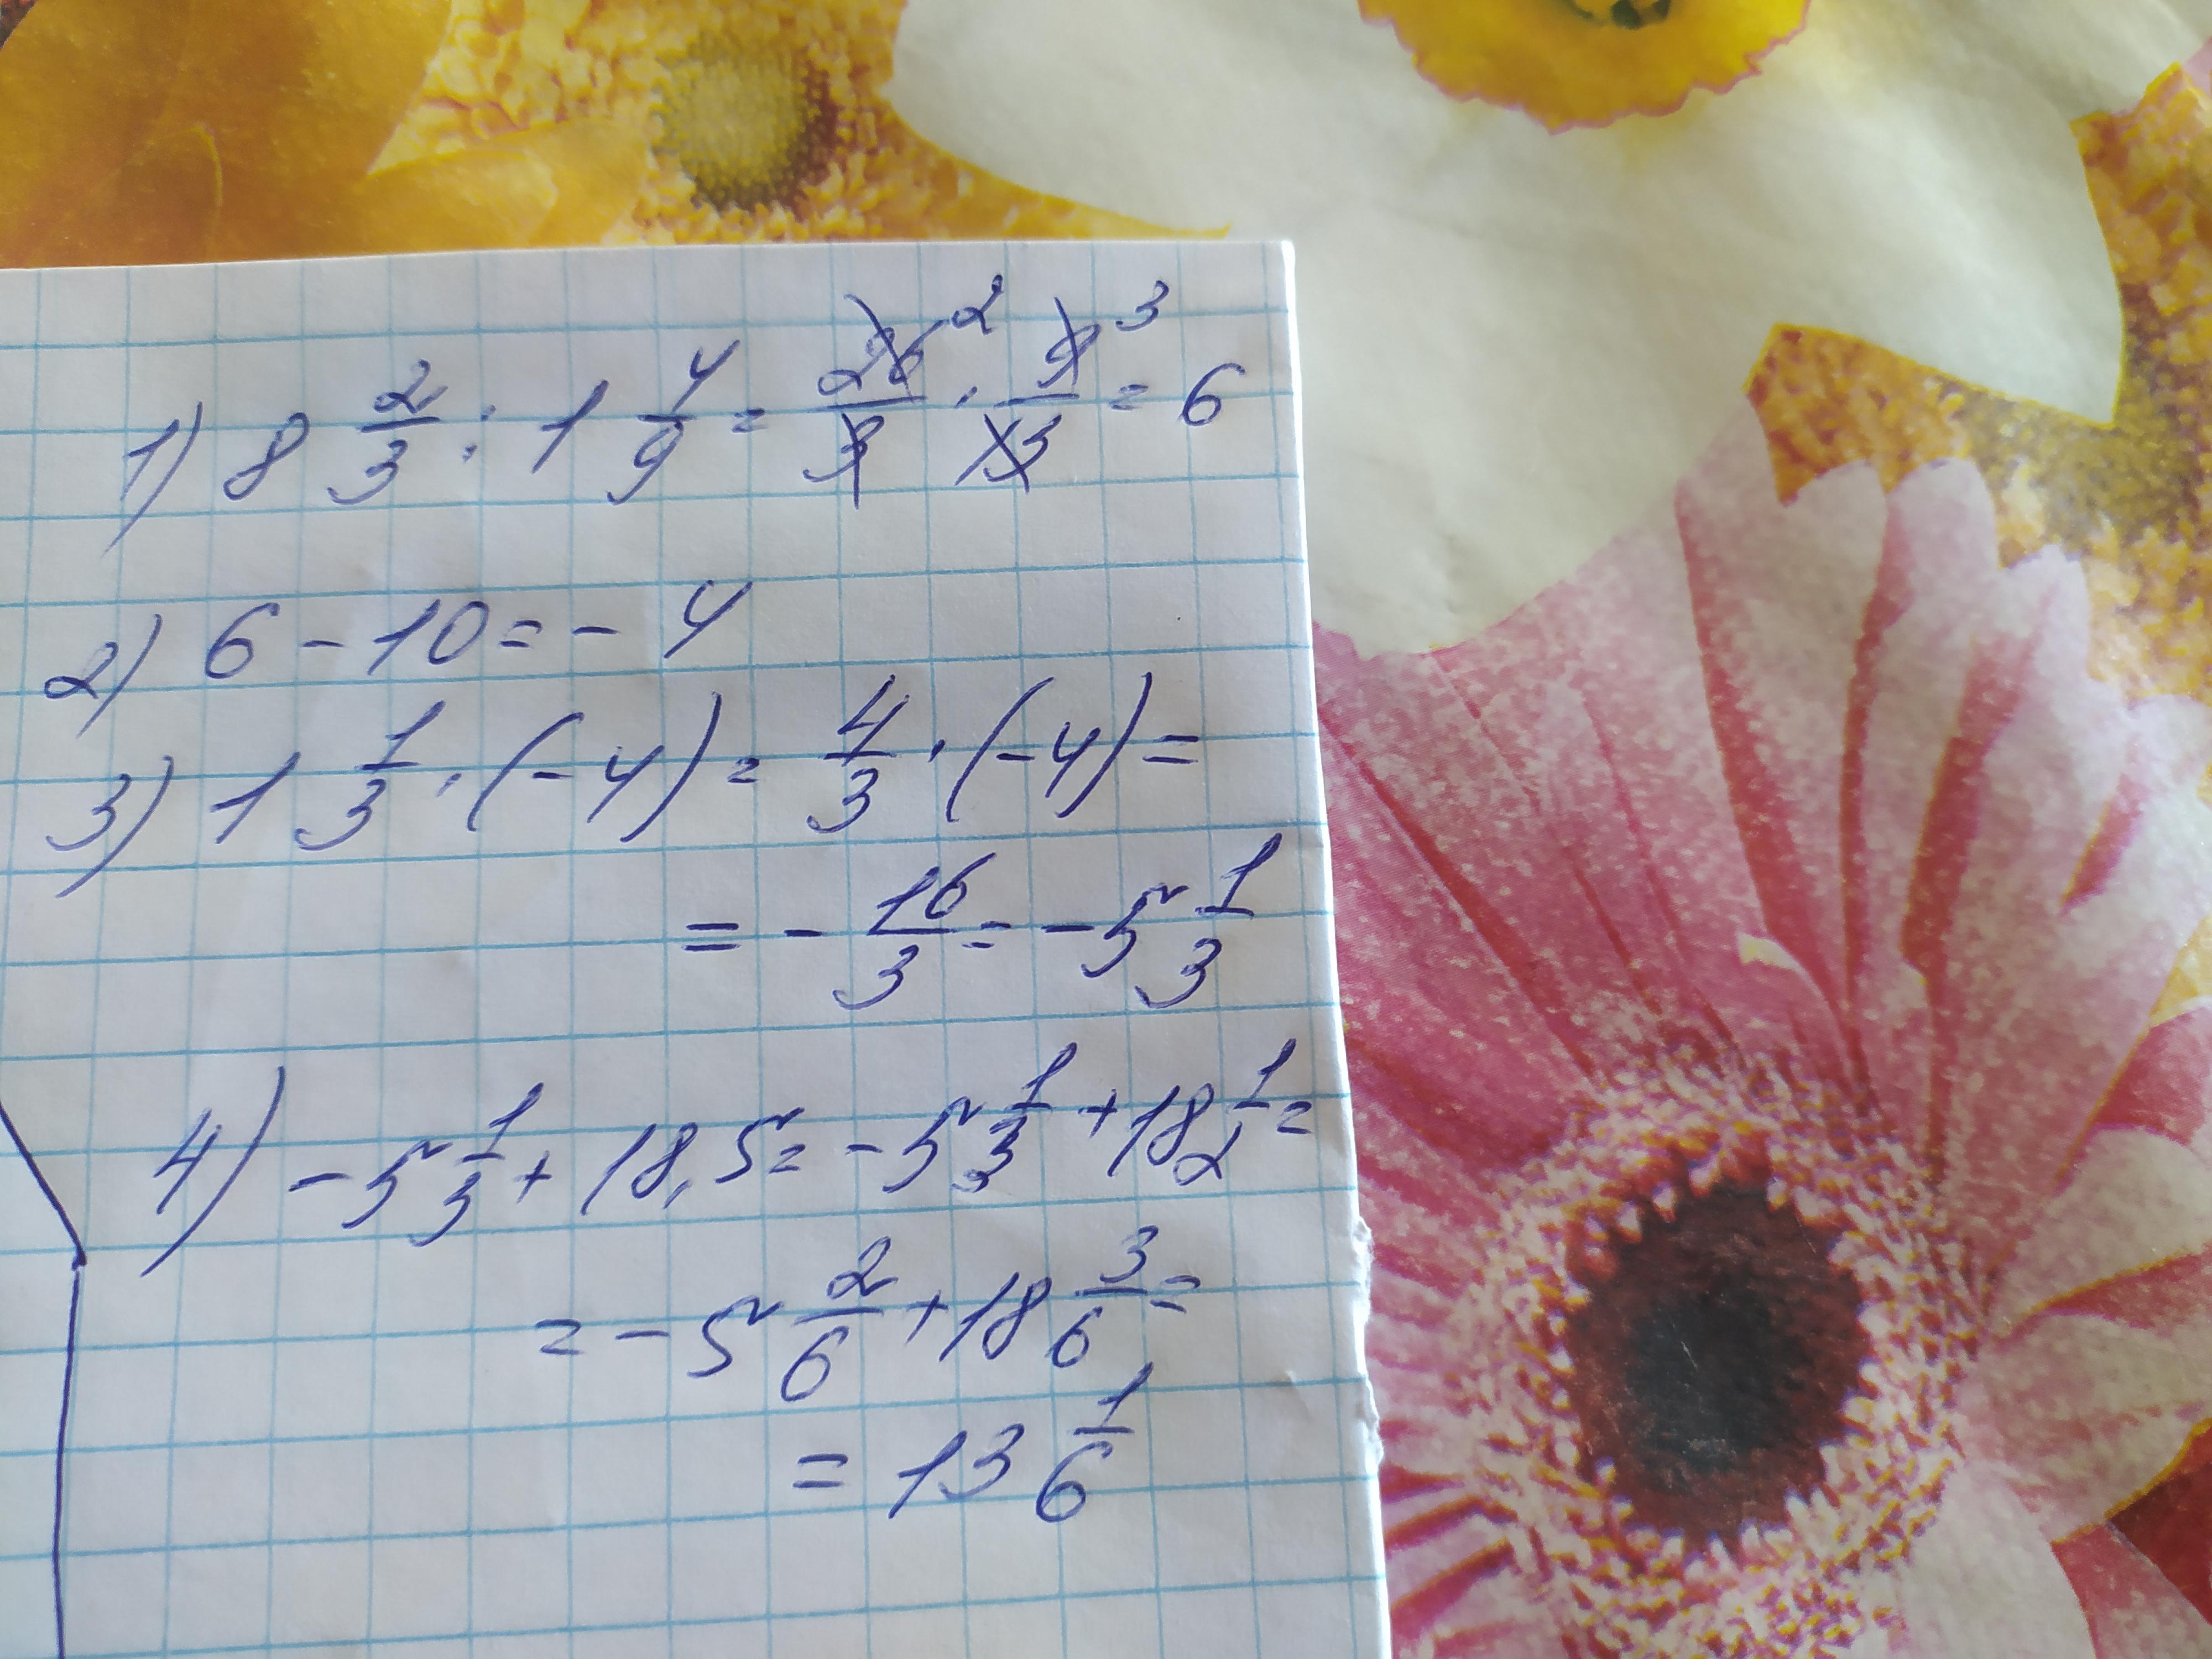 1) 8 2/3 : 1 4/9 = 26/3 2 · 9/13 3 = 6
2) 6 - 10 = - 4
3) 1 1/3 · (-4) = 4/3 · (-4) =
= - 16/3 = -5 1/3
4) -5 1/3 + 18,5 = -5 1/3 + 18 1/2 =
= -5 2/6 + 18 3/6 =
= 13 1/6